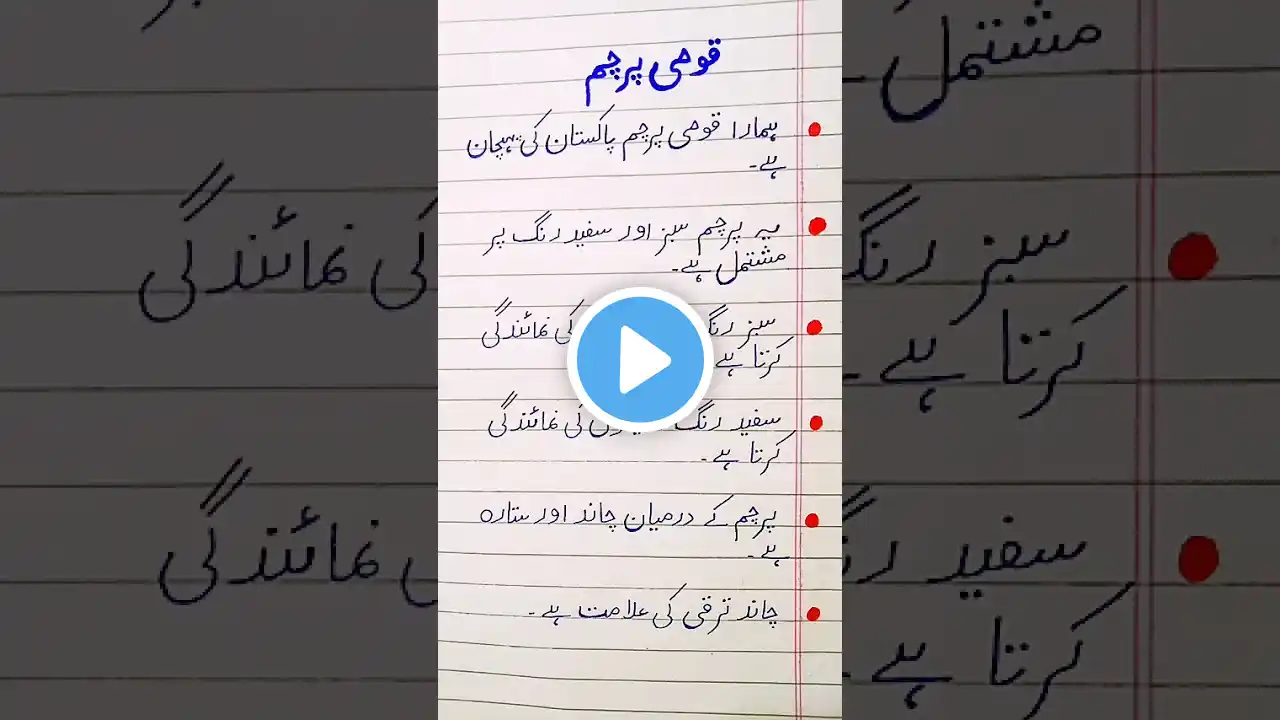 قومی پرچم
ہمارا قومی پرچم پاکستان کی پہچان
ہے۔
یہ پرچم سبز اور سفید رنگ پر
مشتمل ہے۔
سبز رنگ کی نمائندگی
کرتا ہے
سفید رنگ کی نمائندگی
کرتا ہے۔
پرچم کے درمیان چاند اور ستارہ
ہے۔
چاند ترقی کی علامت ہے۔